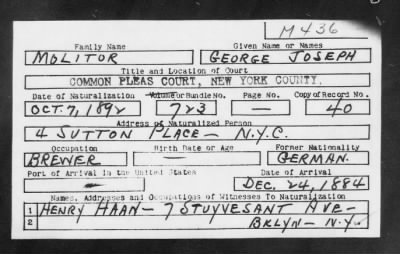 M436
Family Name Given Name or Names
MOLITOR GEORGE JOSEPH
Title and Location of Court
COMMON PLEAS COURT, NEW YORK COUNTY.
Date of Naturalization Volume or Bundle No. Page No. Copy of Record No.
OCT. 7, 1892 723 — 40
Address of Naturalized Person
4 SUTTON PLACE — N.Y.C.
Occupation Birth Date or Age Former Nationality
BREWER — GERMAN.
Port of Arrival in the United States Date of Arrival
— DEC. 24, 1884
Names, Addresses and Occupations of Witnesses To Naturalization
1 HENRY HAAN — 7 STUYVESANT AVE —
2 BKLYN — N.Y.